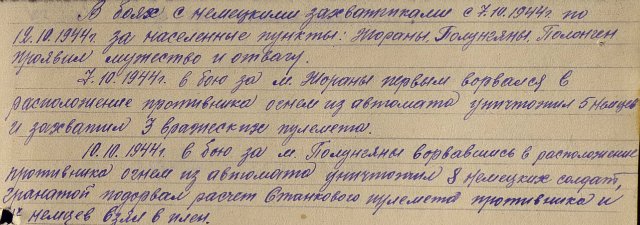 В боях с немецкими захватчиками с 7.10.1944г по
12.10.1944г за населенные пункты: Жораны, Полунсяны, Полончен
проявил мужество и отвагу.
7.10.1944г. в бою за м. Жораны первым ворвался в
расположение противника огнем из автомата уничтожил 5 немцев
и захватил 3 вражеских пулемета.
10.10.1944г. в бою за м. Полунсяны ворвавшись в расположение
противника огнем из автомата уничтожил 8 немецких солдат,
гранатой подорвал расчет станкового пулемета противника и
немцев взял в плен.